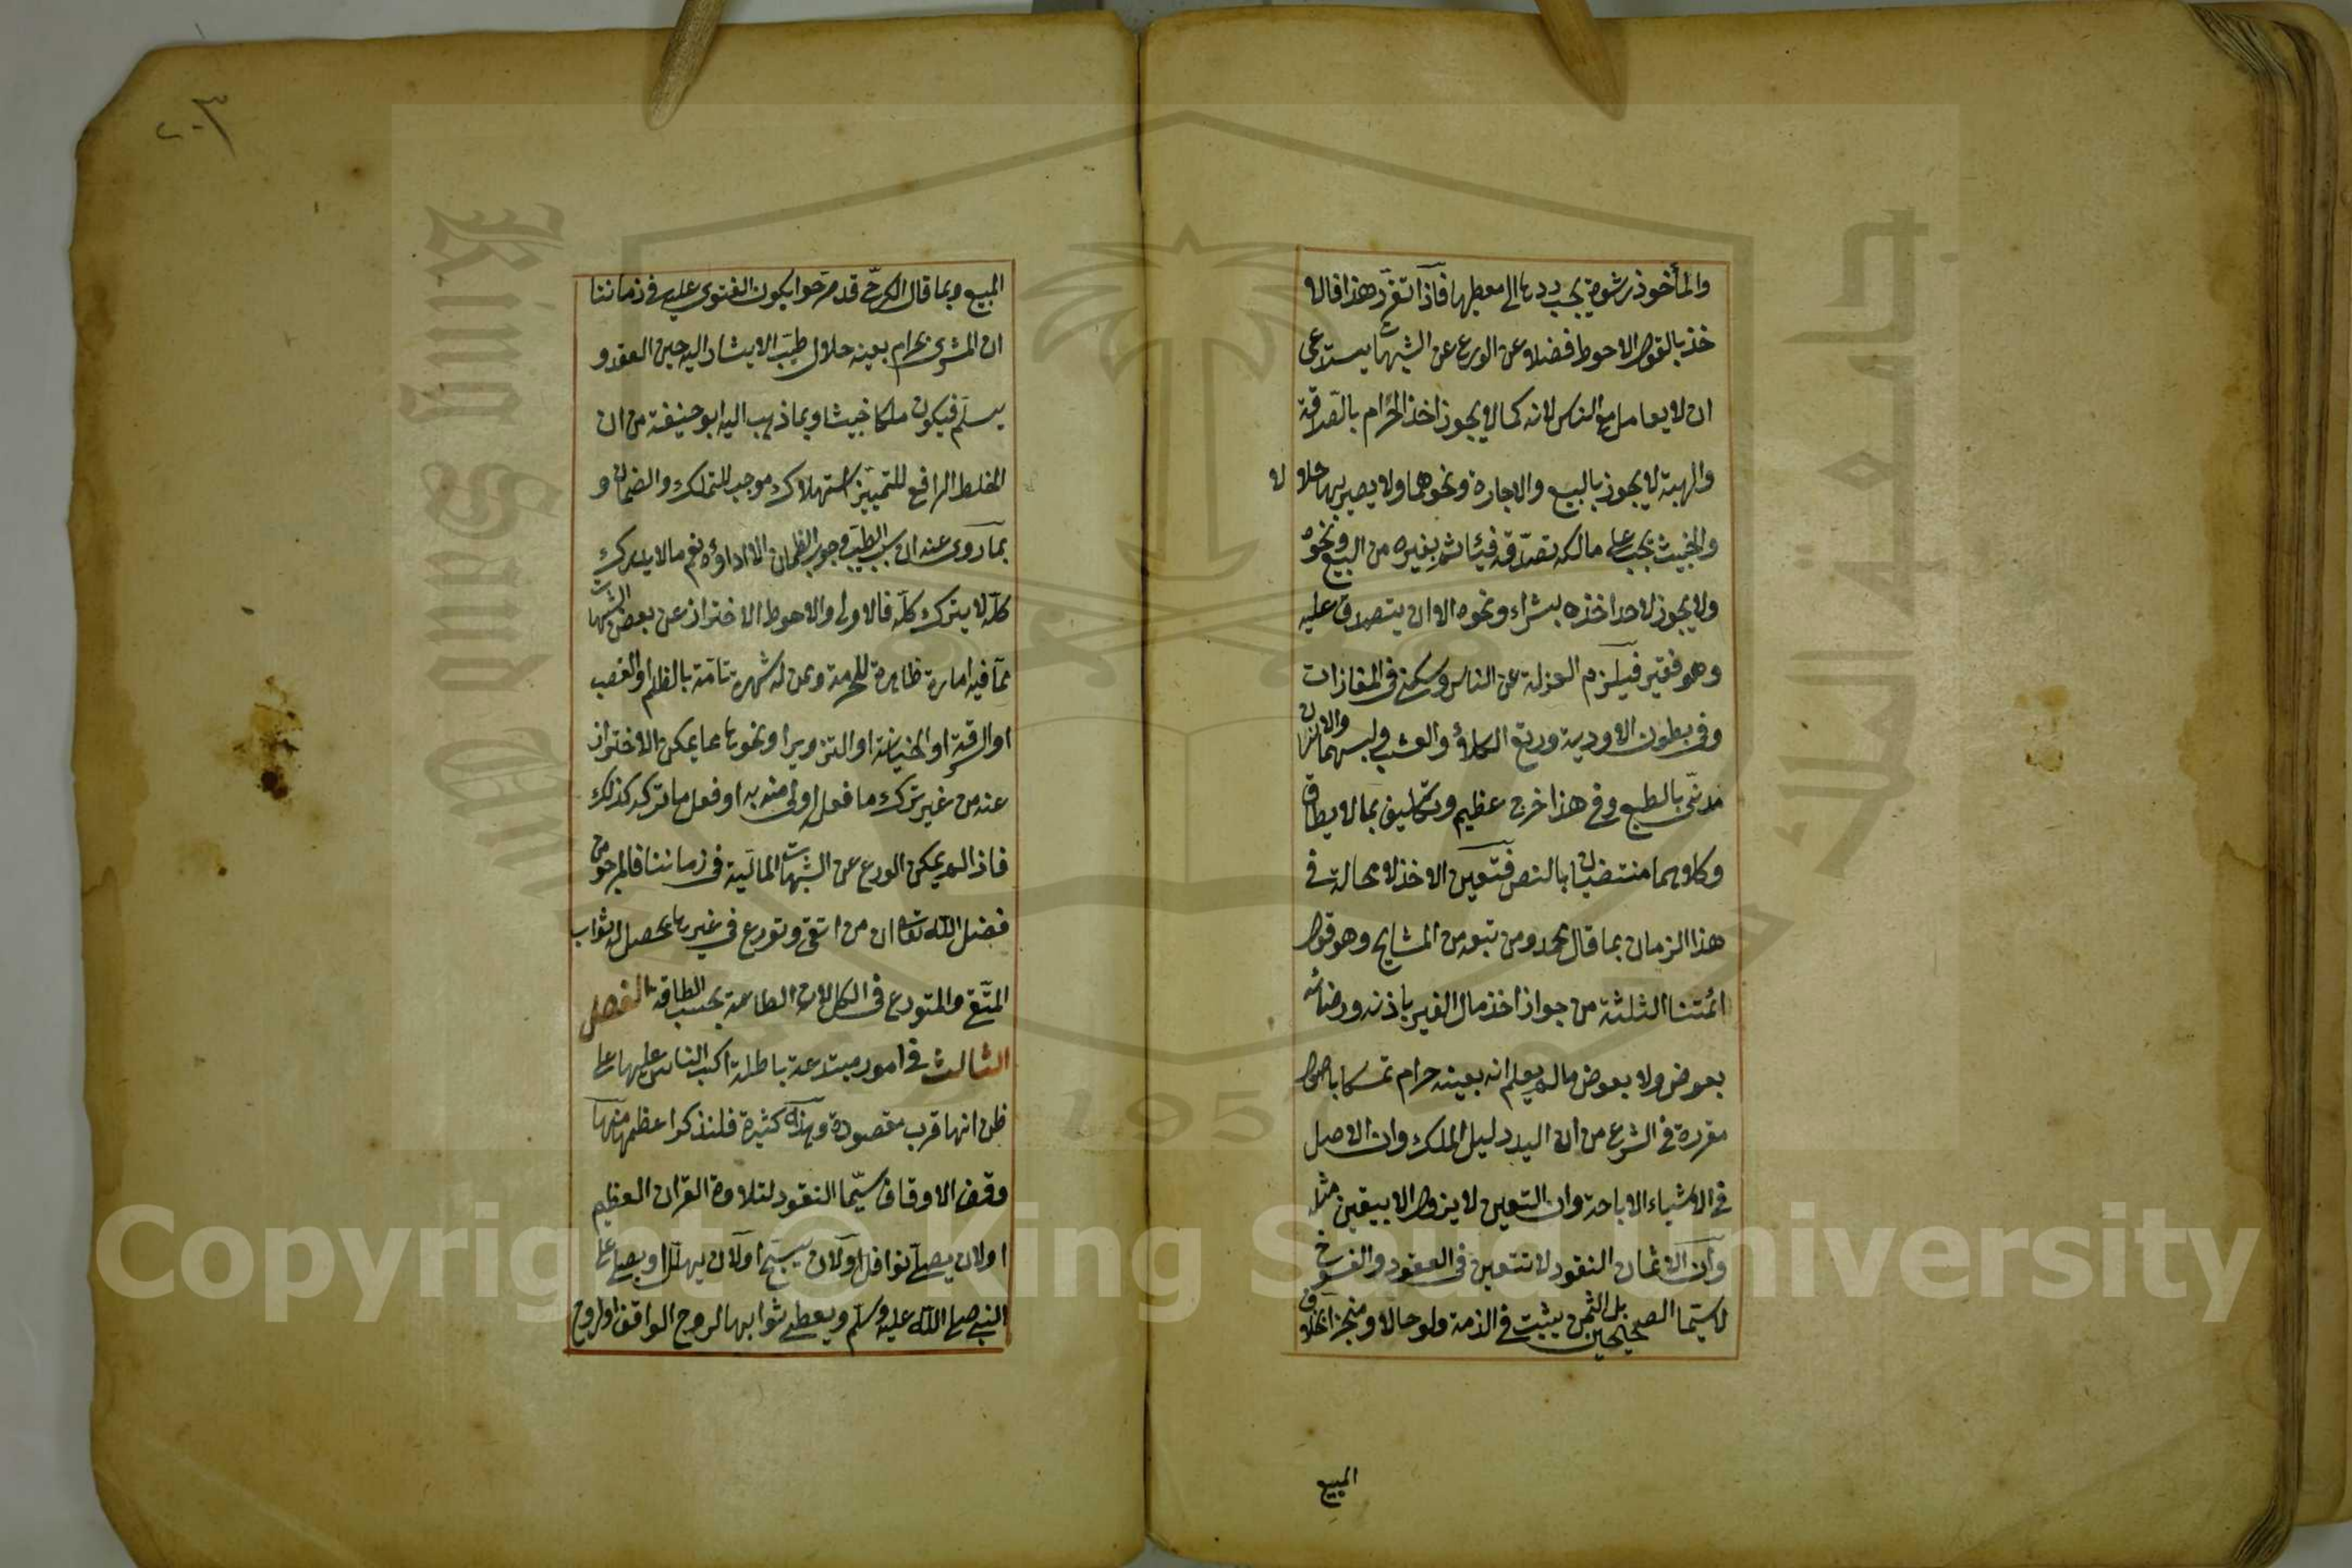 والمأخوذ رشوة يجب ردها الى معطيها فاذا تقرر هذا فالا
خذ بالقول الاحوط فضلا عن الورع عن الشبهات يستدعى
ان لا يعامل مع الناس لانه كما لا يجوز اخذ الحرام بالصدقة
والهبة لا يجوز بالبيع والاجارة ونحوهما ولا يصير بها حلالا
والخبيث يجب على مالكه تصدقه فيأثم بغيره من البيع ونحوه
ولا يجوز لاحد اخذه بشراء ونحوه الا ان يتصدق عليه
وهو فقير فيلزم العزلة عن الناس وسكنى فى المفازات
وفى بطون الاودية ورتع الكلاء والعشب ولبسهما والانسان
مدنى بالطبع وفى هذا حرج عظيم وتكليف بما لا يطاق
وكلاهما منتفيان بالنص فتعين الاخذ لا محالة فى
هذا الزمان بما قال محمد ومن تبعه من المشايخ وهو قول
ائمتنا الثلثة من جواز اخذ مال الغير باذنه ورضائه
بعوض ولا بعوض ما لم يعلم انه بعينه حرام تمسكا باصول
مقررة فى الشرع من ان اليد دليل الملك وان الاصل
فى الاشياء الاباحة وان اليقين لا يزول الا بيقين مثله
وان الاثمان النقود لا تتعين فى العقود والفسوخ
لاسيما الصحيحين بل الثمن يثبت فى الذمة ولو حالا ومنجزا بخلاف
المبيع
٢٠٣
المبيع وبما قال الكرخى قد مر حوا بكون الفتوى عليه فى زماننا
ان المشرى بحرام بعينه حلال طيب الا يشار اليه حين العقد و
يسلم فيكون ملكا خبيثا وبما ذهب اليه ابو حنيفة من ان
الخلط الرافع للتمييز استهلاك موجب للتملك والضمان و
بما روى عنه ان سبب الطيب وجوب الضمان لا اداؤه نعم ما لا يدرك
كله لا يترك كله فالاولى والاحوط الاحتراز عن بعض الشبهات
مما فيه امارة ظاهرة للحرمة وممن له شهرة تامة بالظلم او الغصب
او السرقة او الخيانة او التزوير او نحوها مما يمكن الاحتراز
عنه من غير ترك ما فعله اولى منه به او فعل ما تركه كذلك
فاذا لم يمكن الورع عن الشبهات المالية فى زماننا فالمرجو من
فضل الله تعالى ان من اتقى وتورع فى غيرها يحصل له ثواب
المتقى والمتورع فى الكل لان الطاعة بحسب الطاقة الفصل
الثالث فى امور مبتدعة باطلة اكب الناس عليها على
ظن انها قرب مقصودة وهذه كثيرة فلنذكر اعظمها منها
وقف الاوقاف سيما النقود لتلاوة القران العظيم
او لان يصلى نوافل او لان يسبح او لان يهلل او يصلى على
النبى صلى الله عليه وسلم ويعطى ثوابها لروح الواقف او لروح